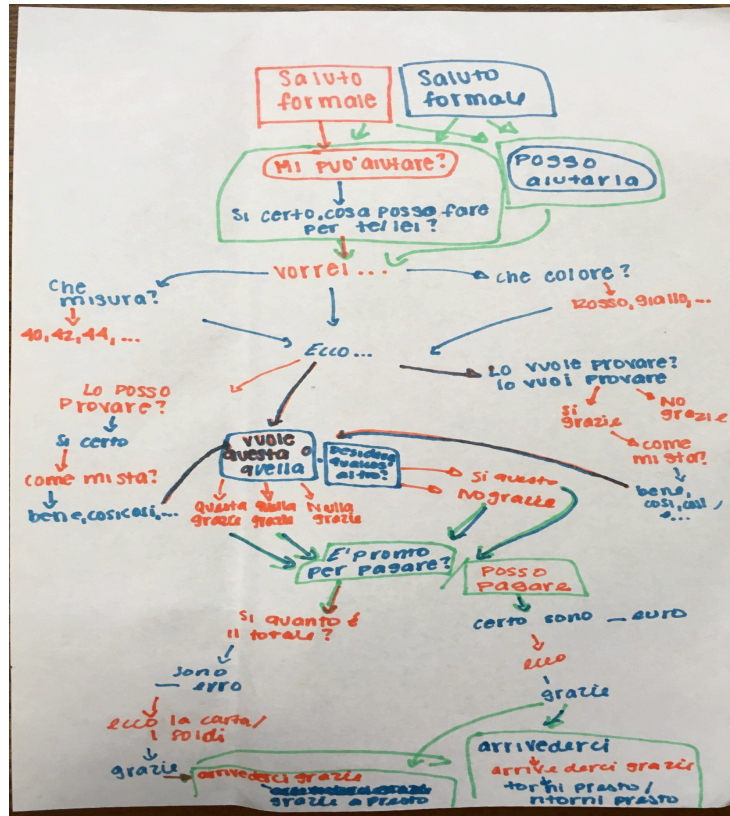 Saluto
formale
Saluto
formale
Mi può aiutare?
Posso
aiutarla
Si certo, cosa posso fare
per te/lei?
vorrei ...
Che
misura?
40, 42, 44, ...
che colore?
Rosso, giallo, ...
Ecco...
Lo posso
provare?
si certo
come mi sta?
bene, cosicosi, ...
Lo vuole provare?
lo vuoi provare
si
grazie
No
grazie
come
mi sta?
bene,
cosi, cosi,
...
vuole
questa o
quella
desidera
qualcos'
altro?
Questa
grazie
quella
grazie
Nulla
grazie
Si questo
No grazie
E' pronto
per pagare?
posso
pagare
Si quanto è
il totale?
sono
— euro
ecco la carta/
i soldi
grazie
certo sono — euro
ecco
grazie
arrivederci grazie
grazie a presto
arrivederci
arrivederci grazie
torni presto/
ritorni presto